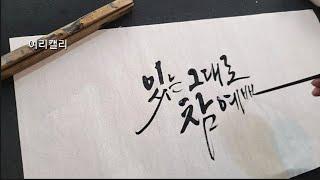 여리캘리
있는 그대로
참 예배